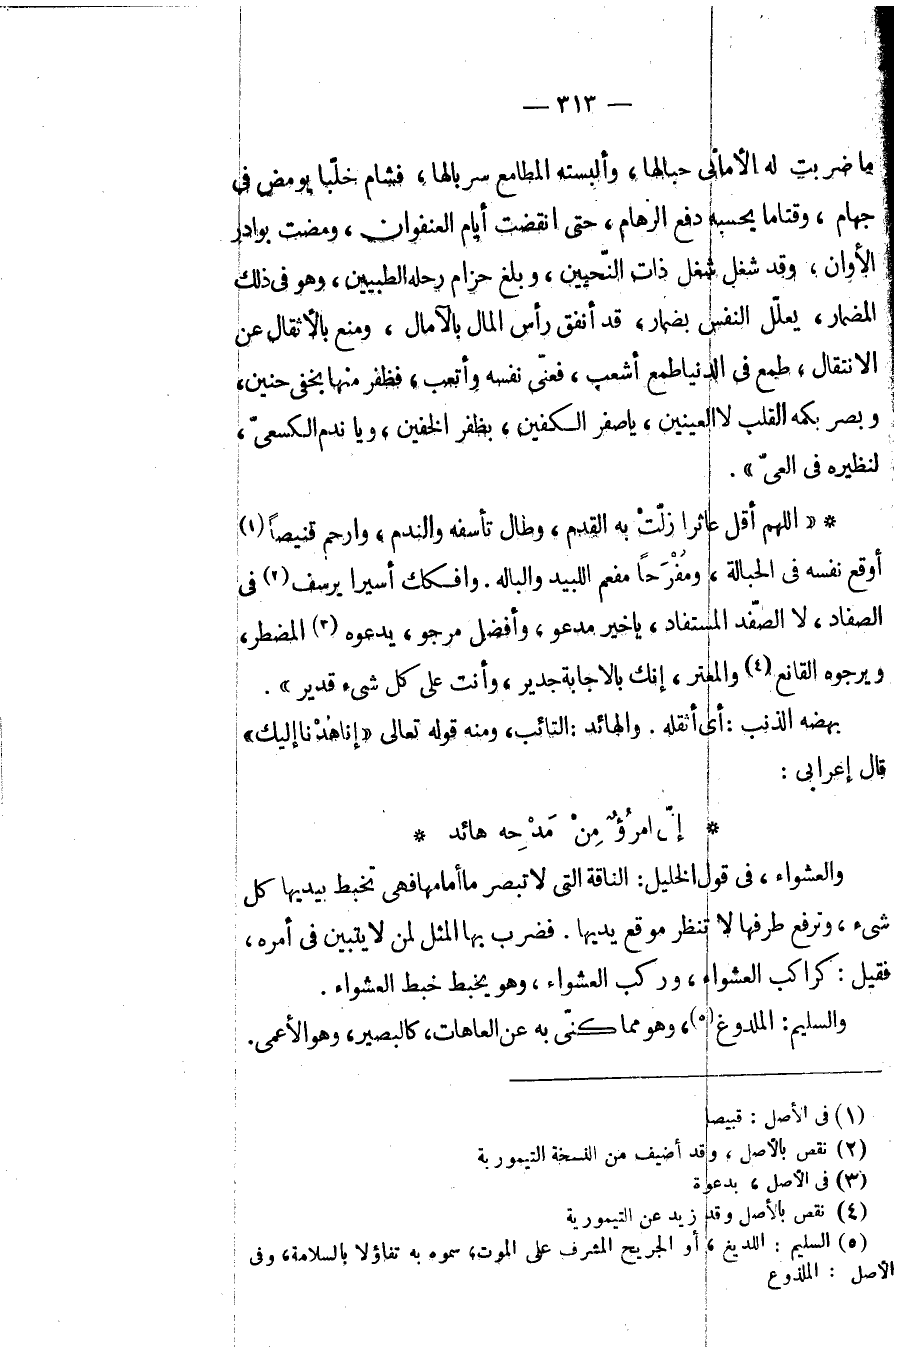 — ٣١٣ —
ما ضربت له الأمانى حبالها ، وألبسته المطامع سربالها ، فشام خلّبا يومض فى
جهام ، وقتاما يحسبه دفع الرهام ، حتى انقضت أيام العنفوان ، ومضت بوادر
الأوان ، وقد شغل شغل ذات النّحيين ، وبلغ حزام رحله الطبيين ، وهو فى ذلك
المضمار ، يعلّل النفس بضمار ، قد أنفق رأس المال بالآمال ، ومنع بالأثقال عن
الانتقال ، طمع فى الدنيا طمع أشعب ، فعنّى نفسه وأتعب ، فظفر منها بخفى حنين ،
وبصر بكمه القلب لا العينين ، ياصفر الكفين ، بظفر الخفين ، ويا ندم الكسعىّ ،
لنظيره فى العىّ » .
* « اللهم أقل عاثرا زلّتْ به القدم ، وطال تأسفه والندم ، وارحم قنيصاً (١)
أوقع نفسه فى الحبالة ، ومُفْرَحًا مفعم اللبيد والباله . وافكك أسيرا يرسف (٢) فى
الصفاد ، لا الصّفد المستفاد ، ياخير مدعو ، وأفضل مرجو ، يدعوه (٣) المضطر ،
ويرجوه القانع (٤) والمعتر ، إنك بالاجابة جدير ، وأنت على كل شىء قدير » .
بهضه الذنب : أى أثقله . والهائد : التائب ، ومنه قوله تعالى « إنا هُدْنا إليك »
قال إعرابى :
* إنّى امرُؤٌ مِنْ مَدْحِه هائد *
والعشواء ، فى قول الخليل : الناقة التى لا تبصر ما أمامها فهى تخبط بيديها كل
شىء ، وترفع طرفها لا تنظر موقع يديها . فضرب بها المثل لمن لا يتبين فى أمره ،
فقيل : كراكب العشواء ، وركب العشواء ، وهو يخبط خبط العشواء .
والسليم : الملدوغ (٥) ، وهو مما كنّى به عن العاهات ، كالبصير ، وهو الأعمى .
(١) فى الأصل : قبيصا
(٢) نقص بالأصل ، وقد أضيف من النسخة التيمورية
(٣) فى الأصل ، بدعوة
(٤) نقص بالأصل وقد زيد عن التيمورية
(٥) السليم : اللديغ ، أو الجريح المشرف على الموت ، سموه به تفاؤلا بالسلامة ، وفى
الأصل : الملذوع